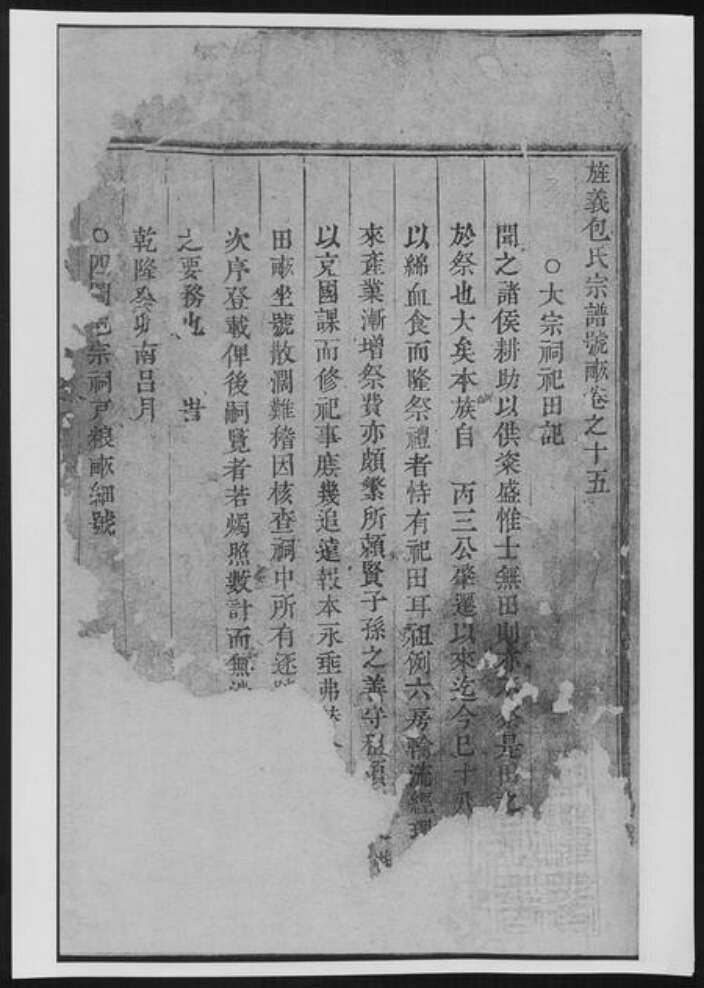 旌義包氏宗譜號畝卷之十五
○大宗祠祀田記
聞之諸侯耕助以供粢盛惟士無田則亦不祭是田之
於祭也大矣本族自 丙三公肇遷以來迄今已十八
以綿血食而隆祭禮者恃有祀田耳祖例六房輪流經理
來產業漸增祭費亦頗繁所賴賢子孫之善守租
以克國課而修祀事庶幾追遠報本永垂弗
田畝坐號散濶難稽因核查祠中所有逐
次序登載俾後嗣覽者若燭照數計而無
之要務也 旹
乾隆癸卯南呂月
宗祠戸糧畝細號